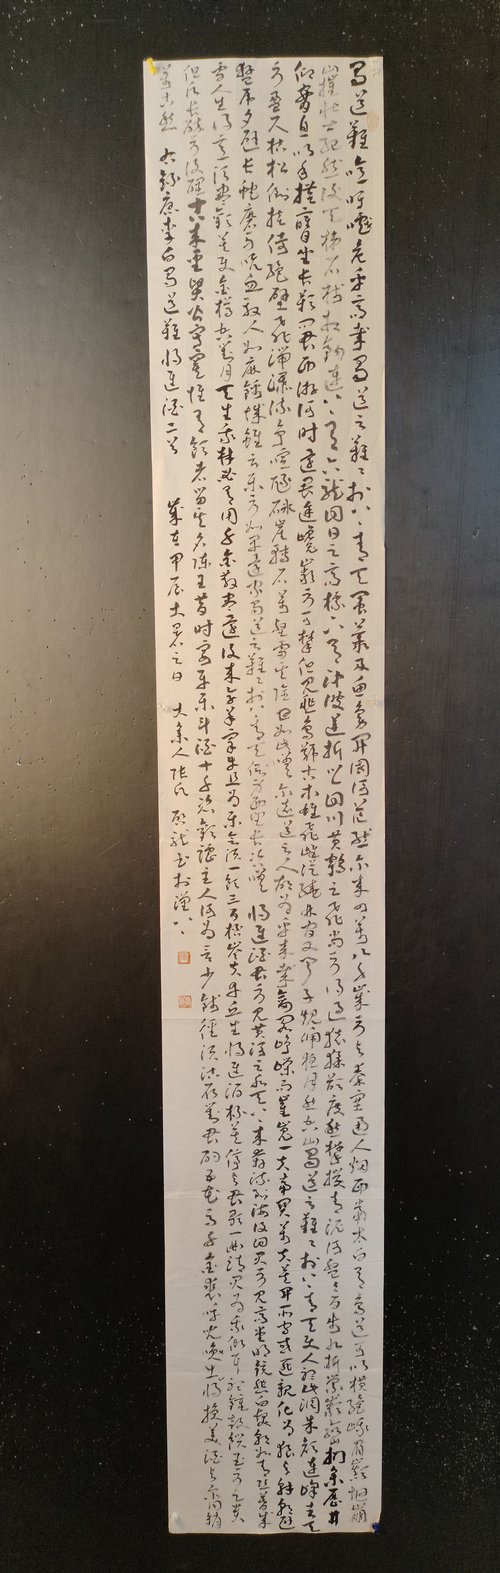 蜀道難噫吁嚱危乎高哉蜀道之難々於上青天蚕叢及魚凫開國何茫然尔来四萬八千歲不与秦塞通人烟西當太白有鳥道可以横絶峨眉巔地崩
山摧壮士死然後天梯石棧相鈎連上有六龍回日之高標下有沖波逆折之回川黄鶴之飛尚不得過猿猱欲度愁攀援青泥何盤々百步九折縈巖巒捫参歷井
仰脅息以手撫膺坐長歎問君西游何時還畏途巉巖不可攀但見悲鳥號古木雄飛雌從繞林間又聞子規啼夜月愁空山蜀道之難々於上青天使人聽此凋朱顔連峰去天
不盈尺枯松倒挂倚絶壁飛湍瀑流爭喧豗砯崖轉石萬壑雷其險也如此嗟尔遠道之人胡為乎来哉劍閣崢嶸而崔嵬一夫當関萬夫莫開所守或匪親化為狼与豺朝避
猛虎夕避長蛇磨牙吮血殺人如麻錦城雖云樂不如早還家蜀道之難々於上青天側身西望長咨嗟 將進酒君不見黄河之水天上来奔流到海不復回君不見高堂明鏡悲白髮朝如青丝暮成
雪人生得意須盡歡莫使金樽空對月天生我材必有用千金散盡還復来烹羊宰牛且為樂會須一飲三百杯岑夫子丹丘生將進酒杯莫停与君歌一曲請君為我側耳聽鐘鼓饌玉不足貴
但願長醉不復醒古来聖賢皆寂寞惟有飲者留其名陳王昔時宴平樂斗酒十千恣歡謔主人何為言少錢徑須沽取對君酌五花馬千金裘呼兒將出換美酒与爾同銷
萬古愁 右録唐李白蜀道難將進酒二首 歲在甲辰大暑之日 張氏啟龍書於漢上